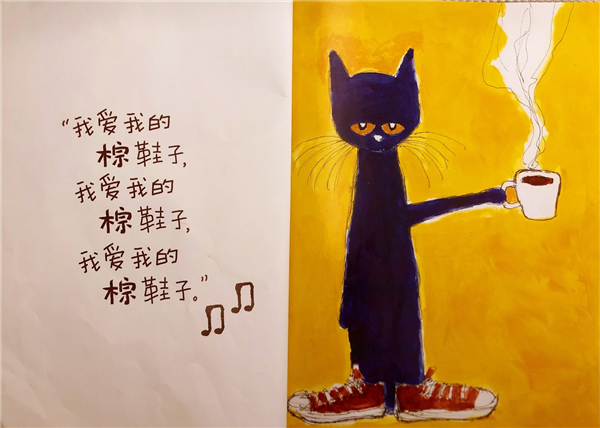 “我爱我的
棕鞋子,
我爱我的
棕鞋子,
我爱我的
棕鞋子。”